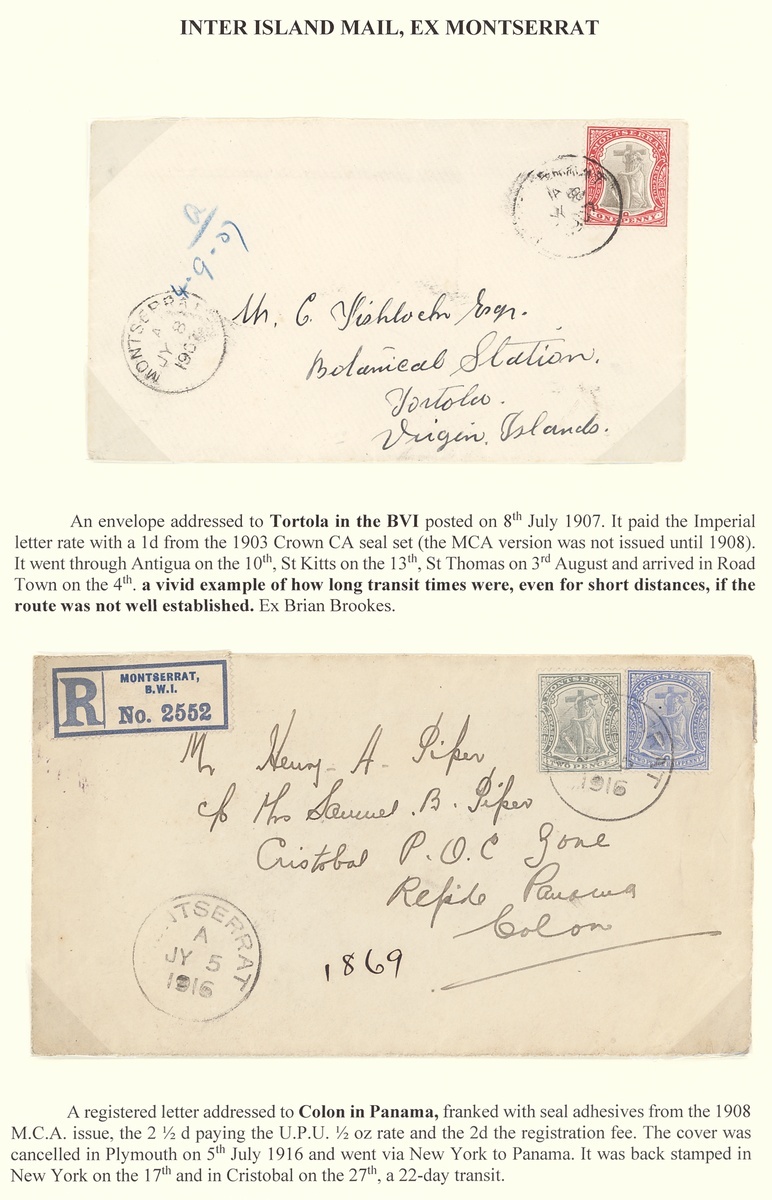 INTER ISLAND MAIL, EX MONTSERRAT
MONTSERRAT
ONE PENNY
A
MONTSERRAT
A
JY 8
1907
Mr. C. Fishlock Esqr.
Botanical Station.
Tortola.
Virgin Islands.
An envelope addressed to Tortola in the BVI posted on 8th July 1907. It paid the Imperial
letter rate with a 1d from the 1903 Crown CA seal set (the MCA version was not issued until 1908).
It went through Antigua on the 10th, St Kitts on the 13th, St Thomas on 3rd August and arrived in Road
Town on the 4th. a vivid example of how long transit times were, even for short distances, if the
route was not well established. Ex Brian Brookes.
R
MONTSERRAT,
B.W.I.
No. 2552
MONTSERRAT
TWO PENCE
MONTSERRAT
1916
Mr Henry A. Piper
c/o Mrs Samuel. B. Piper
Cristobal P.O.C Zone
Panama
Colon
MONTSERRAT
A
JY 5
1916
1869
A registered letter addressed to Colon in Panama, franked with seal adhesives from the 1908
M.C.A. issue, the 2 ½ d paying the U.P.U. ½ oz rate and the 2d the registration fee. The cover was
cancelled in Plymouth on 5th July 1916 and went via New York to Panama. It was back stamped in
New York on the 17th and in Cristobal on the 27th, a 22-day transit.